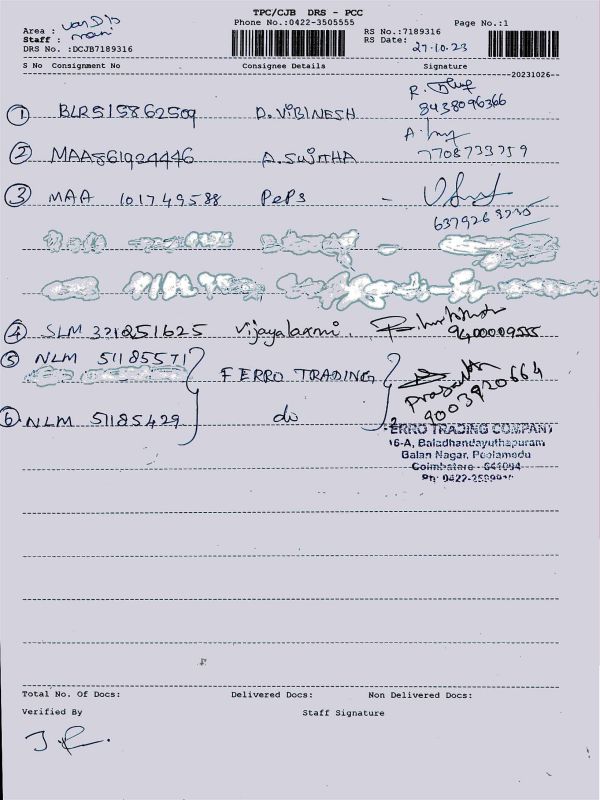 TPC/CJB DRS - PCC
Phone No.:0422-3505555 Page No.:1
Area :
Staff : mani
RS No.:7189316
RS Date: 27-10.23
DRS No. :DCJB7189316
S No Consignment No Consignee Details Signature
20231026
1 BLR515862509 D.VIBINESH 8438096366
2 MAA561924446 A.SWITHA 7708733759
3 MAA 101749588 PePs - 6379268235
4 SLM 321251625 Vijayalaxmi. 9400009555
5 NLM 51185571 FERRO TRADING Prasanth 9003920664
6 NLM 51185429 do
FERRO TRADING COMPANY
16-A, Baladhandayuthapuram
Balan Nagar, Peelamedu
Coimbatore - 641004
Ph: 0422-
Total No. Of Docs: Delivered Docs: Non Delivered Docs:
Verified By Staff Signature